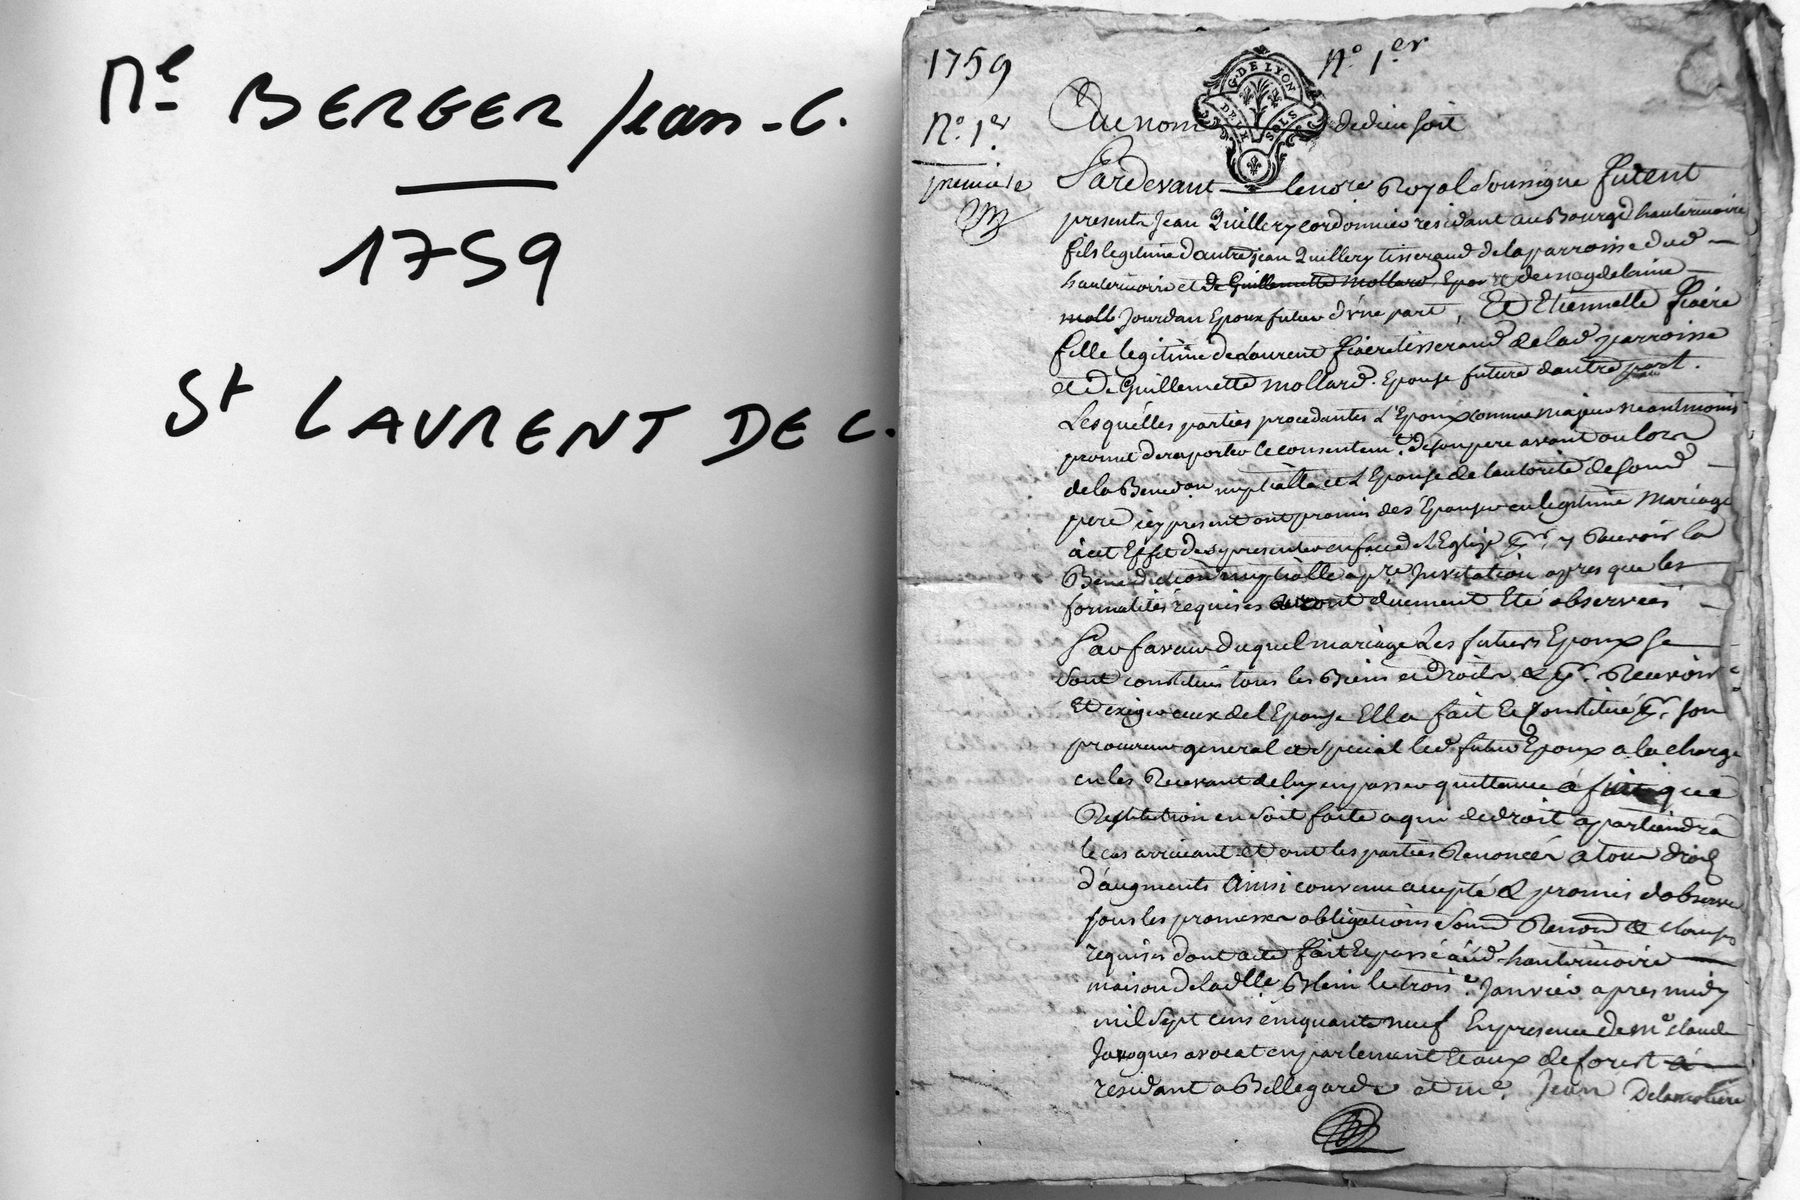 Me BERGER Jean-C.
1759
St LAURENT DE C.
1759
N° 1er
N° 1er
première
G. DE LYON
DEUX SOLS
Au nom de dieu soit
Pardevant le no.re Royal soussigne furent
presents Jean Quillery cordonnier residant au Bourg d'hauterivoire
fils legitime d'autre jean Quillery tisserand de la parroisse dud
hauterivoire et de Guillemette Mollard, Epou de magdelaine
moll Jourdan Epoux futur d'vne part, Et Etiennette
fille legitime de Laurent tisserand de lad parroisse
et de Guillemette Mollard. Epouse future dautre part.
Lesquelles parties procedantes L'Epoux comme majeur neantmoins
promet de raporter le consentemt. de son pere avant ou lors
de la Bened.on nuptialle et L'Epouse de l'autorité de sond
pere icy present ont promis de s'Epouser en legitime mariage
à cet Effet de se presenter en face de L'Eglise pr. y Recevoir la
Benediction nuptialle apre Invitation apres que les
formalités requises auront duement Eté observées
Par faveur duquel mariage Les futurs Epoux se
sont constitués tous les Biens et Droits & pr. Recevoir
Et exiger ceux de l'Epouse Elle a fait Et constitué pr. son
procureur general et special led. futur Epoux a la charge
en les Recevant de luy en passer quittance a que
Restitution en soit faite a qui de droit apartiendra
le cas arrivant et ont les parties Renoncés a tous droits
d'augments ainsi convenu accepté & promis d'observer
sous les promesses obligations soum Renon & clauses
requises dont acte fait Et passé aud. hauterivoire
maison de lad.lle Blein le trois e. Janvier apres midy
mil sept cens cinquante neuf En presence de me claude
Javogues avocat en parlement Et aux de forest a
residant a Bellegarde et me. Jean Delamoliere